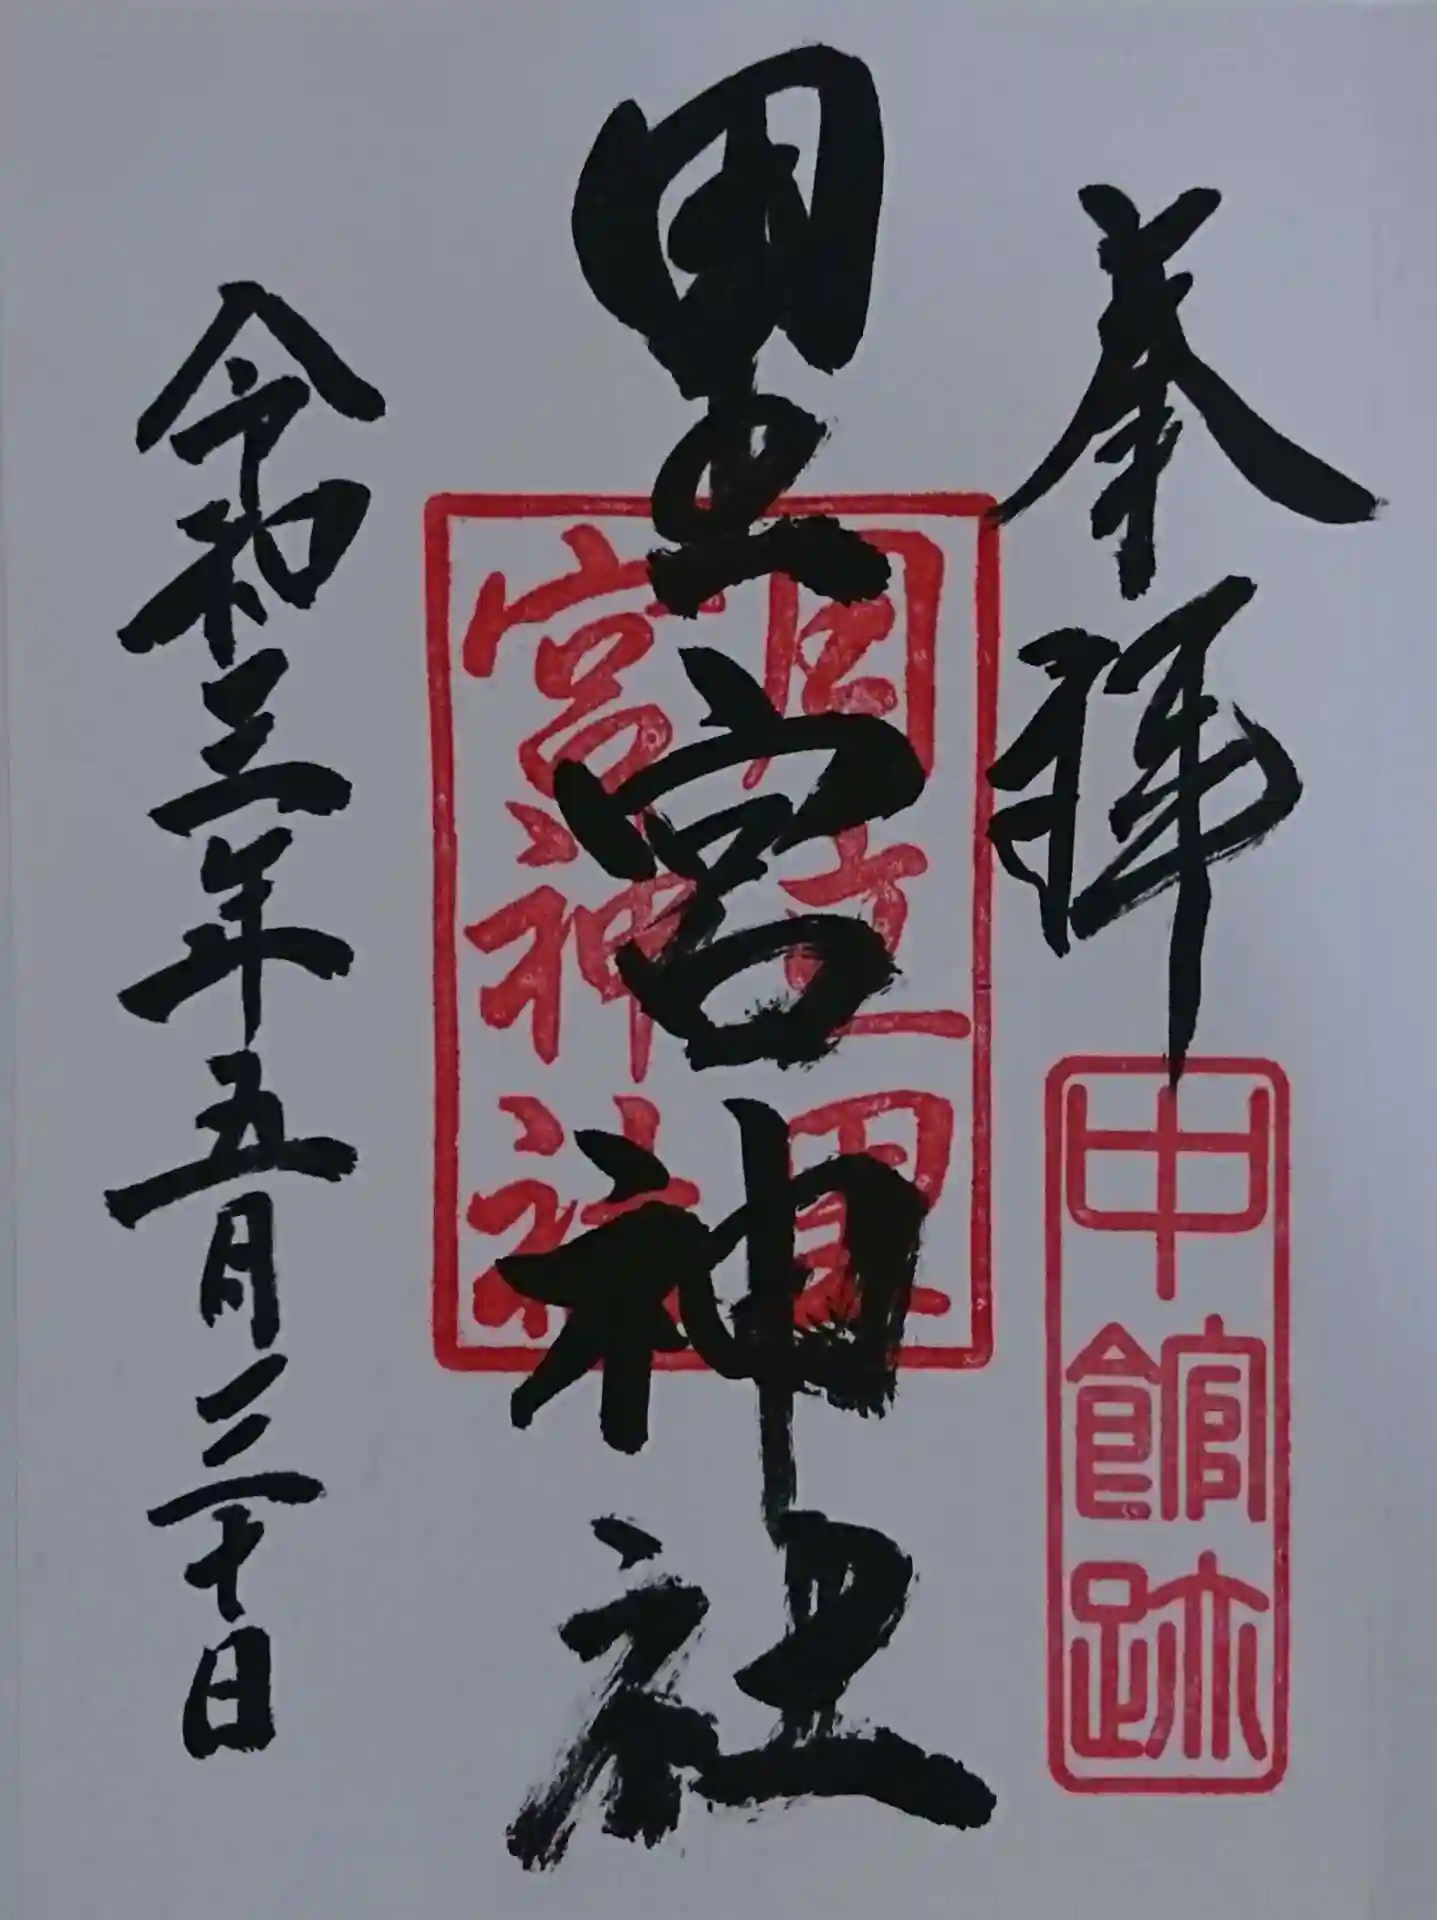 奉拝
中館跡
里宮神社
里
宮神社
令和三年五月三十日